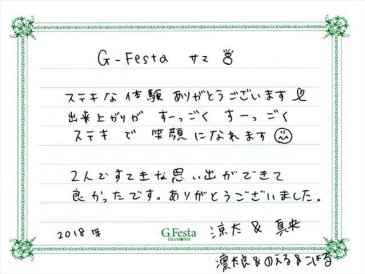 G-Festa サマ
ステキな体験ありがとうございます
出来上がりが すーっごく すーっごく
ステキで 笑顔になれます
2人ですてきな思い出ができて
良かったです。ありがとうございました。
2018年
G.Festa
DIAMOND
涼だ & 真央